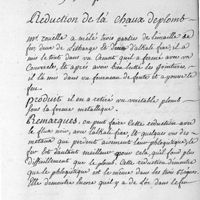 Réduction de la chaux de plomb
Mr rouelle a mêlé trois parties de limaille de
fer, deux de litharge et demie d'alkali fixe; il a
mis le tout dans un creuset qu'il a fermé avec un
couvercle, et apres avoir bien lutté les jointures,
il l'a mis dans un fourneau de fonte et a poussé le
feu.
Produit: il en a retiré un veritable plomb
sous sa forme metallique.
Remarques, on peut faire cette réduction avec
le flux noir, avec l'alkali fixe, et quelques
que peuvent avoir leur phlogistique; le
fer est d'autant meilleur pour cela, qu'il
difficilement que le plomb. Cette réduction démontre
que le phlogistique est le même dans les trois regnes
Elle demontre encore qu'il y a de l'or dans le